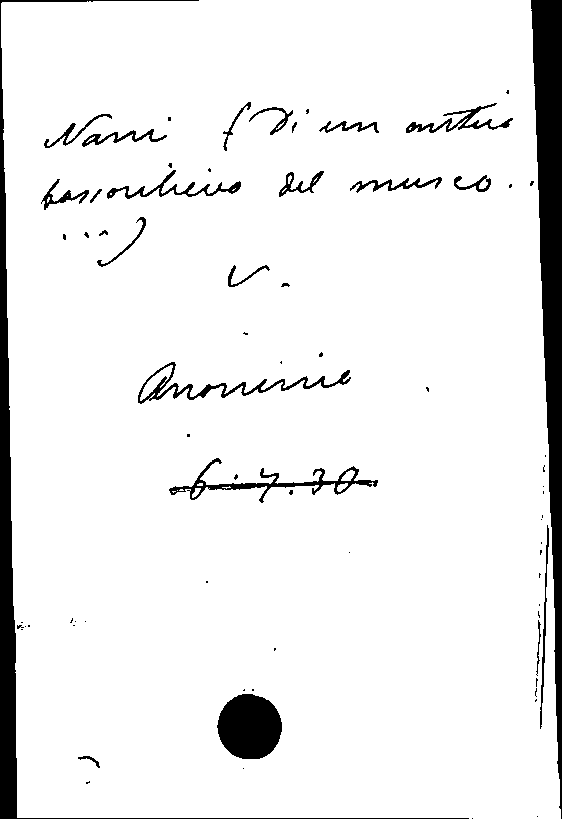 Nani (Di un antico
bassorilievo del museo..
...)
V.
Anonimo
6.7.30